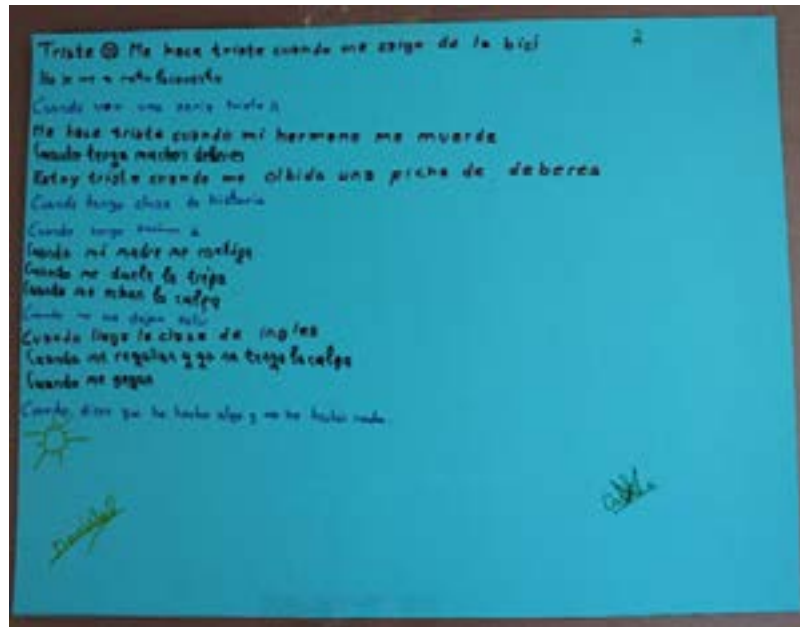 Triste ☹ Me hace triste cuando me caigo de la bici
2
Cuando veo una serie triste
Me hace triste cuando mi hermano me muerde
Cuando tengo muchos deberes
Estoy triste cuando me olbido una ficha de deberes
Cuando tengo clase de historia
Cuando tengo
Cuando mi madre me castiga
Cuando me duele la tripa
Cuando me echan la culpa
Cuando no me dejan salir
Cuando llega la clase de ingles
Cuando me regañan y yo no tengo la culpa
Cuando me pegan
Cuando dicen que he hecho algo y no he hecho nada.